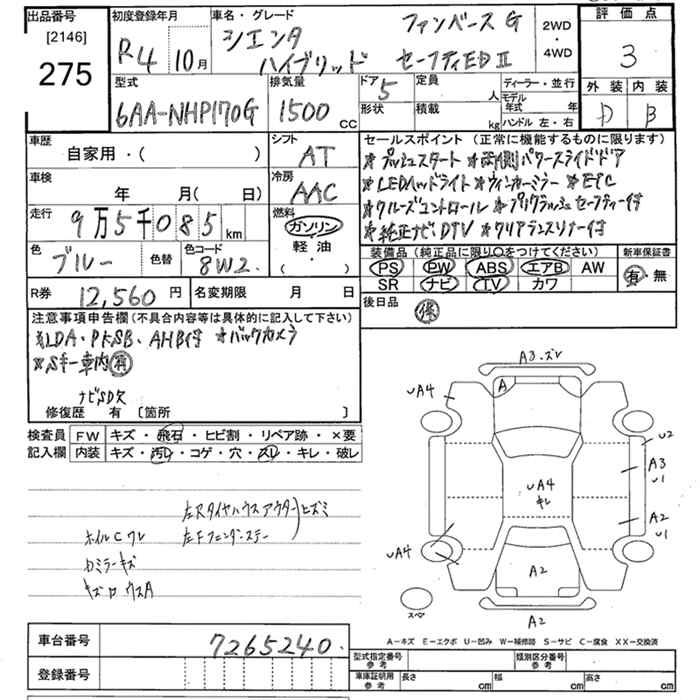 出品番号
[2146]
275
初度登録年月
R4 10月
車名・グレード
シエンタ ファンベースG
ハイブリッド セーフティEDⅡ
2WD
・
4WD
評価点
3
外装 内装
D B
型式
6AA-NHP170G
排気量
1500 CC
ドア 5
形状
定員 人
積載 kg
ディーラー・並行
モデル年式 年
ハンドル 左・右
車歴
自家用・( )
シフト
AT
車検
年 月( 日)
冷房
AAC
走行
9万5千085km
燃料
ガソリン
・
軽油
・
( )
色
ブルー
色替
色コード
8W2.
セールスポイント(正常に機能するものに限ります)
*プッシュスタート *両側パワースライドドア
*LEDヘッドライト *ウィンカーミラー *ETC
*クルーズコントロール *プリクラッシュセーフティ付
*純正ナビ、DTV *クリアランスソナー付
装備品(純正品に限り○をつけてください)
新車保証書
PS PW ABS エアB AW
SR ナビ TV カワ
有・無
R券 12,560円
名変期限 月 日
後日品
保
注意事項申告欄(不具合内容等は具体的に記入して下さい)
*LDA・PKSB、AHB付 *バックカメラ
*Sキー車内有
ナビSD欠
修復歴 有 [箇所 ]
検査員
記入欄
FW キズ・飛石・ヒビ割・リペア跡・×要
内装 キズ・汚レ・コゲ・穴・スレ・キレ・破レ
左Rタイヤハウスアウター
左Fフェンダーステー
ヒズミ
ホイルCワレ
カミラーキズ
A3.ズレ
A
UA4
U2
A3
U1
UA4
キレ
A2
U1
UA4
A2
スペア
A2
A-キズ E-エクボ U-凹み W-補修跡 S-サビ C-腐食 XX-交換済
車台番号 7265240.
登録番号
型式指定番号
参考
類別区分番号
参考
車庫証明用
参考
長さ cm
幅 cm
高さ cm